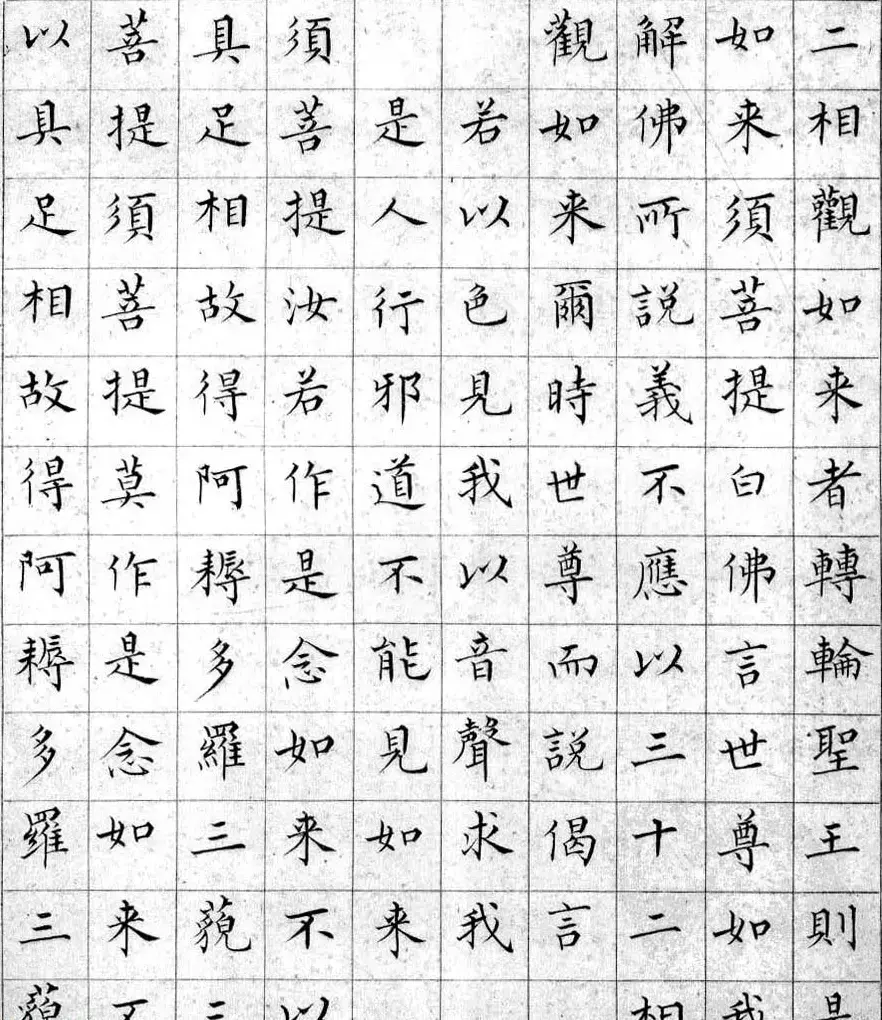 二相觀如来者轉輪聖王則是
如来須菩提白佛言世尊如我
解佛所説義不應以三十二相
觀如来爾時世尊而説偈言
若以色見我以音聲求我
是人行邪道不能見如来
須菩提汝若作是念如来不以
具足相故得阿耨多羅三藐三
菩提須菩提莫作是念如来不
以具足相故得阿耨多羅三藐